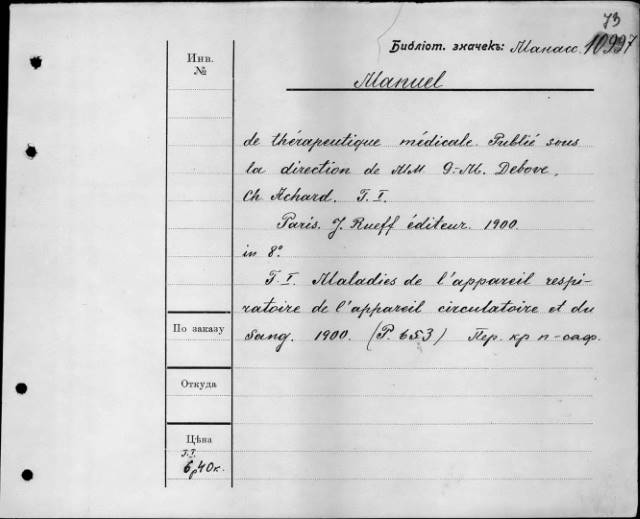 73
Библіот. значекъ: Манасс. 10997
Инв.
№
Manuel
de thérapeutique médicale. Publié sous
la direction de MM G.-M. Debove,
Ch Achard. T. I.
Paris. J. Rueff éditeur. 1900.
in 8º
T. I. Maladies de l'appareil respi-
ratoire de l'appareil circulatoire et du
Sang. 1900. (P. 653) Пер. кр п-саф.
По заказу
Откуда
Цѣна
T.I.
6р 40к.